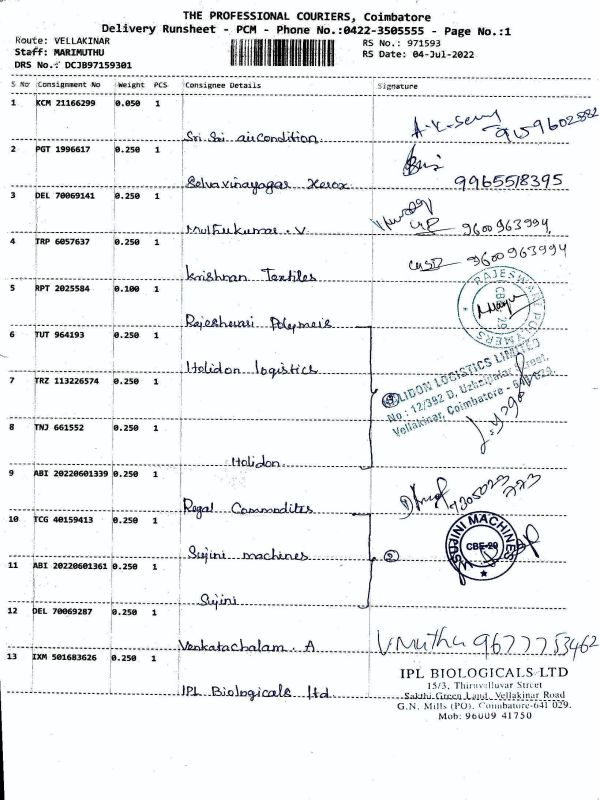 THE PROFESSIONAL COURIERS, Coimbatore
Delivery Runsheet - PCM - Phone No.:0422-3505555 - Page No.:1
Route: VELLAKINAR
RS No.: 971593
Staff: MARIMUTHU
RS Date: 04-Jul-2022
DRS No.: DCJB97159301
S No Consignment No Weight PCS Consignee Details Signature
1 KCM 21166299 0.050 1
Sri Sai aircondition
A.K.
2 PGT 1996617 0.250 1
Selvavinayagar Xerox
9965518395
3 DEL 70069141 0.250 1
Muthukumar. V
9600963994
4 TRP 6057637 0.250 1
Krishnan Textiles
9600963994
5 RPT 2025584 0.100 1
Rajeshwari Polymers
RAJESWARI POLYMERS
6 TUT 964193 0.250 1
Holidon logistics
HOLIDON LOGISTICS LIMITED
No : 12/392 D, Street,
Vellakinar, Coimbatore - 641 029.
7 TRZ 113226574 0.250 1
8 TNJ 661552 0.250 1
Holidon
9 ABI 20220601339 0.250 1
Regal Commodites
10 TCG 40159413 0.250 1
Sujini machines
SUJINI MACHINES
CBE-29
2
11 ABI 20220601361 0.250 1
Sujini
12 DEL 70069287 0.250 1
Venkatachalam. A
V Muthu 9677753462
13 IXM 501683626 0.250 1
IPL Biologicals ltd
IPL BIOLOGICALS LTD
15/3, Thiruvalluvar Street
Sakthi Green Land, Vellakinar Road
G.N. Mills (PO), Coimbatore-641 029.
Mob: 96009 41750